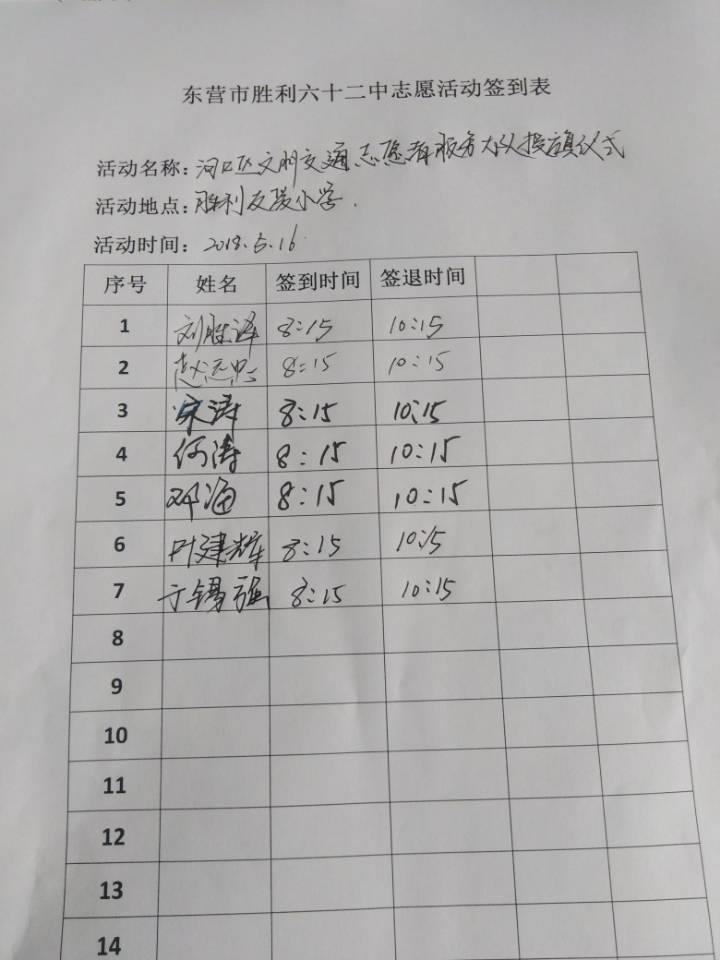 东营市胜利六十二中志愿活动签到表
活动名称：河口区文明交通志愿者服务大队授旗仪式
活动地点：胜利友爱小学.
活动时间：2018.5.16
序号 姓名 签到时间 签退时间
1 刘胜泽 8:15 10:15
2 赵志忠 8:15 10:15
3 宋涛 8:15 10:15
4 何涛 8:15 10:15
5 邓渔 8:15 10:15
6 叶建辉 8:15 10:15
7 于锡强 8:15 10:15
8
9
10
11
12
13
14